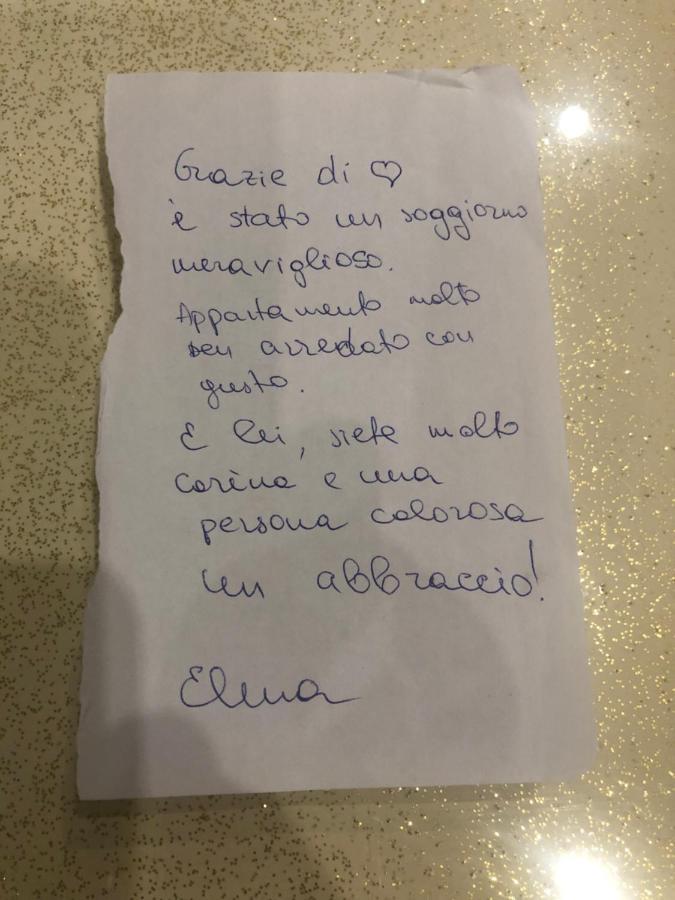 Grazie di ♡
è stato un soggiorno
meraviglioso.
Appartamento molto
ben arredato con
gusto.
E lei, siete molto
carina e una
persona calorosa
un abbraccio!
Elena